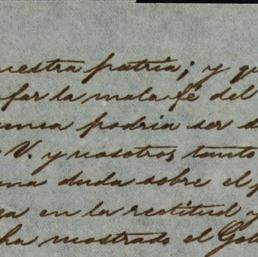 nuestra patria; y q
far la mala fé del
unca podria ser d
V. y nosotros tanto
na duda sobre el p
za en la rectitud y
ha mostrado el Gob